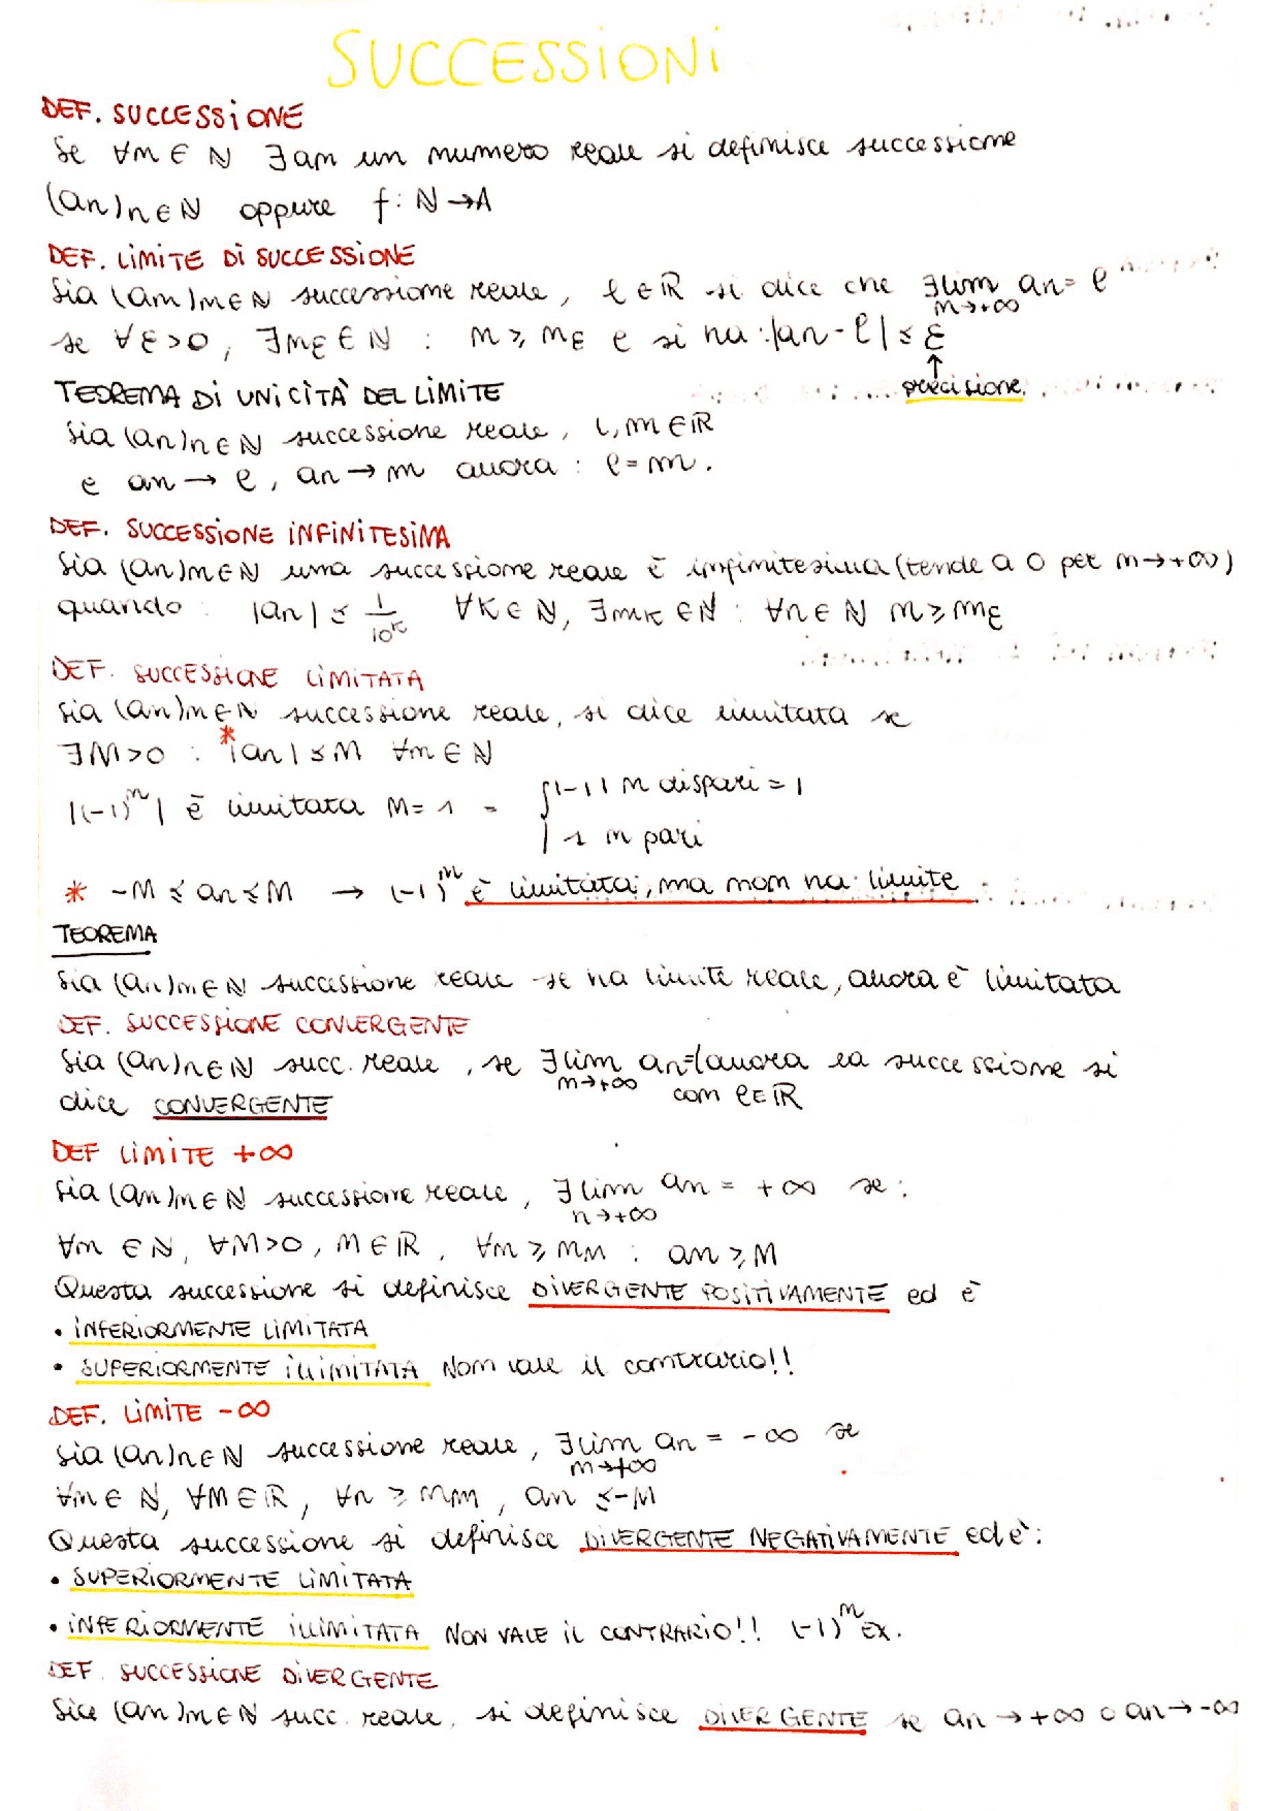 SUCCESSIONI
DEF. SUCCESSIONE
Se ∀n ∈ ℕ ∃ an un numero reale si definisce successione
(an)n∈ℕ oppure f: ℕ→A
DEF. LIMITE DI SUCCESSIONE
Sia (an)n∈ℕ successione reale, ℓ∈ℝ si dice che ∃ lim an = ℓ
n→+∞
se ∀ε>0, ∃nε∈ℕ : n ≥ nε e si ha: |an - ℓ| ≤ ε
↑
precisione
TEOREMA DI UNICITÀ DEL LIMITE
Sia (an)n∈ℕ successione reale, l, m∈ℝ
e an → ℓ, an → m allora : ℓ = m.
DEF. SUCCESSIONE INFINITESIMA
Sia (an)n∈ℕ una successione reale è infinitesima (tende a 0 per n→+∞)
quando : |an| ≤ 1/10^k ∀K∈ℕ, ∃nk∈ℕ : ∀n∈ℕ n ≥ nε
DEF. SUCCESSIONE LIMITATA
Sia (an)n∈ℕ successione reale, si dice limitata se
∃M>0 : *|an| ≤ M ∀n∈ℕ
|(-1)^n| è limitata M = 1 = { |-1| n dispari = 1
1 n pari
* -M ≤ an ≤ M → (-1)^n è limitata, ma non ha limite
TEOREMA
Sia (an)n∈ℕ successione reale se ha limite reale, allora è limitata
DEF. SUCCESSIONE CONVERGENTE
Sia (an)n∈ℕ succ. reale, se ∃ lim an=l allora la successione si
n→+∞ con ℓ∈ℝ
dice CONVERGENTE
DEF LIMITE +∞
Sia (an)n∈ℕ successione reale, ∃ lim an = +∞ se :
n→+∞
∀n ∈ℕ, ∀M>0, M∈ℝ, ∀n ≥ nM : an ≥ M
Questa successione si definisce DIVERGENTE POSITIVAMENTE ed è
• INFERIORMENTE LIMITATA
• SUPERIORMENTE ILLIMITATA Non vale il contrario!!
DEF. LIMITE -∞
Sia (an)n∈ℕ successione reale, ∃ lim an = -∞ se
n→+∞
∀n∈ℕ, ∀M∈ℝ, ∀n ≥ nM, an ≤ -M
Questa successione si definisce DIVERGENTE NEGATIVAMENTE ed è:
• SUPERIORMENTE LIMITATA
• INFERIORMENTE ILLIMITATA NON VALE IL CONTRARIO!! (-1)^n EX.
DEF. SUCCESSIONE DIVERGENTE
Sia (an)n∈ℕ succ. reale, si definisce DIVERGENTE se an → +∞ o an → -∞